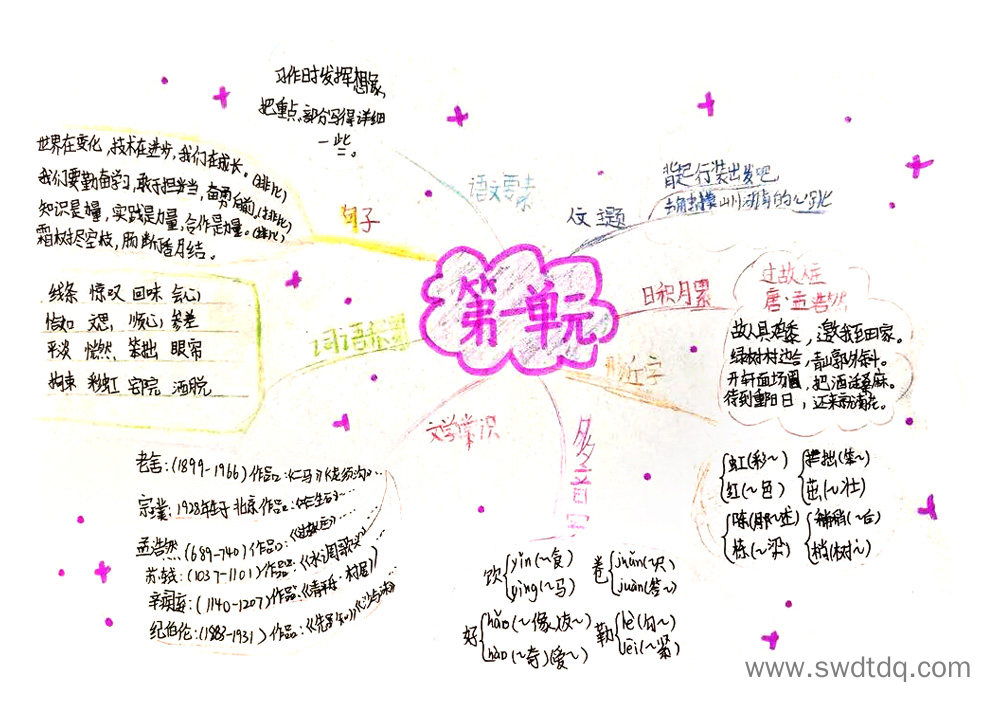 第一单元
语文要素
习作时发挥想象,
把重点部分写得详细
一些。
句子
世界在变化,技术在进步,我们在成长。(排比)
我们要勤奋学,敢于担当,奋勇向前。(排比)
知识是力量,实践是力量,合作是力量。(排比)
霜树尽空枝,肠断丁香结。
词语乐园
线条 惊叹 回味 会心
恰如 文思 顺心 参差
平淡 恍然 笨拙 眼帘
拘束 彩虹 宅院 洒脱
文学常识
老舍:(1899-1966)作品:
宗璞:1928年生于北京作品:
孟浩然(689-740)作品:《过故人庄》…
苏轼:(1037-1101)作品:
辛弃疾:(1140-1207)作品:
纪伯伦:(1883-1931)作品:《先知》《沙与沫》
多音字
饮 yǐn(~食)
yìng(~马)
卷 juǎn(~尺)
juàn(答~)
好 hǎo(~像)(友~)
hào(~奇)(爱~)
勒 lè(勾~)
lēi(~紧)
形近字
虹(彩~)
红(~色)
拙(笨~)
茁(~壮)
陈(~述)
栋(~梁)
稍(~后)
梢(树~)
日积月累
过故人庄
唐·孟浩然
故人具鸡黍,邀我至田家。
绿树村边合,青山郭外斜。
开轩面场圃,把酒话桑麻。
待到重阳日,还来就菊花。
背起行装出发吧
去触摸山川湖海的心跳
www.swdtdq.com